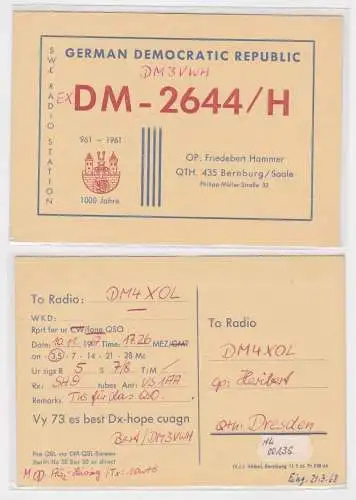 SWL RADIO STATION
GERMAN DEMOCRATIC REPUBLIC
DM3VWH
EX DM-2644/H
961 - 1961
1000 Jahre
OP. Friedebert Hammer
QTH. 435 Bernburg/Saale
Philipp-Müller-Straße 32
To Radio: DM4XOL
WKD:
Rprt for ur CW/fone QSO:
Date: 10.11. 1967 Time: 17.26 MEZ/GMT
on 3,5 - 7 - 14 - 21 - 28 Mc
Ur sigs R 5 S 7/8 T /
Rx: SH9 tubes Ant: VS1AA
Remarks: Tks für das QSO.
Vy 73 es best Dx-hope cuagn
Bert/DM3VWH
Pse QSL via DM-QSL-Bureau
To Radio
DM4XOL
op: Heribert
Qth: Dresden